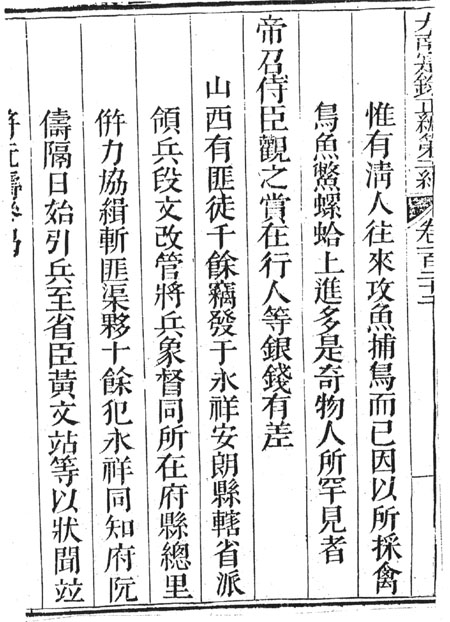 大南寔錄正編第二紀 卷一百二十二
惟有清人往來攻魚捕鳥而已因以所採禽
鳥魚鱉螺蛤上進多是奇物人所罕見者
帝召侍臣觀之賞在行人等銀錢有差
山西有匪徒千餘竊發于永祥安朗縣轄省派
領兵段文改管將兵象督同所在府縣總里
倂力協緝斬匪渠夥十餘犯永祥同知府阮
儔隔日始引兵至省臣黃文站等以狀聞竝